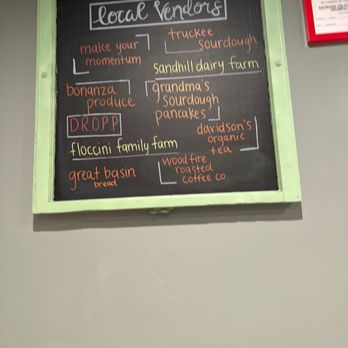 local vendors
make your
momentum
truckee
sourdough
sandhill dairy farm
bonanza
produce
grandma's
sourdough
pancakes
D.R.O.P.P
davidson's
organic
tea
floccini family farm
wood fire
roasted
coffee co.
great basin
bread